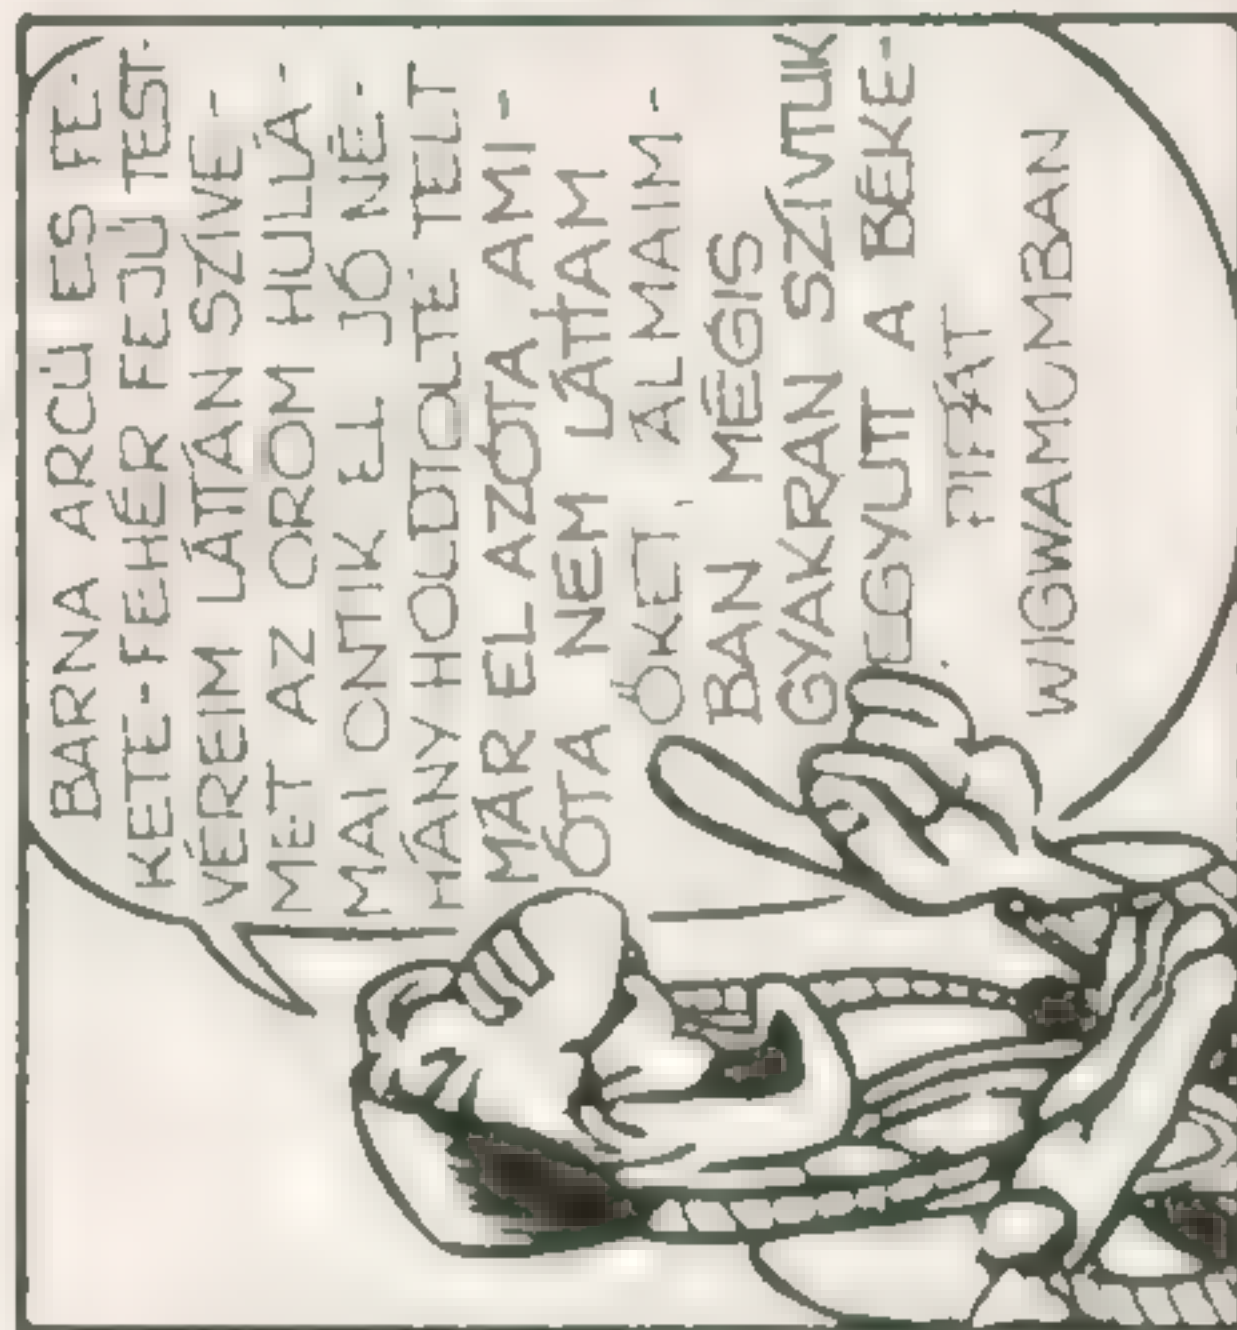 BARNA ARCÚ ES FE-
KETE-FEHÉR FEJŰ TEST-
VÉREIM LÁTTÁN SZIVE-
MET AZ OROM HULLÁ-
MAI ONTIK EL JÓ NÉ-
HÁNY HOLDTOLTE TELT
MÁR EL AZÓTA AMI-
ÓTA NEM LÁTTAM
ŐKET, ÁLMAIM-
BAN MÉGIS
GYAKRAN SZÍVTUK
EGYUTT A BÉKE-
PIPÁT
WIGWAMOMBAN